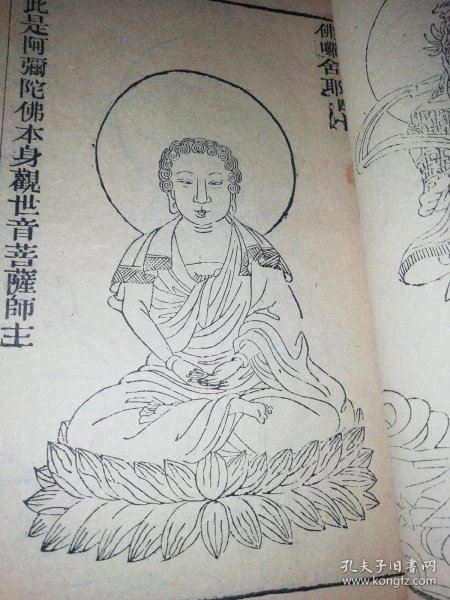 佛囉舍耶四十
此是阿彌陀佛本身觀世音菩薩師主
孔夫子旧书网
www.kongfz.com